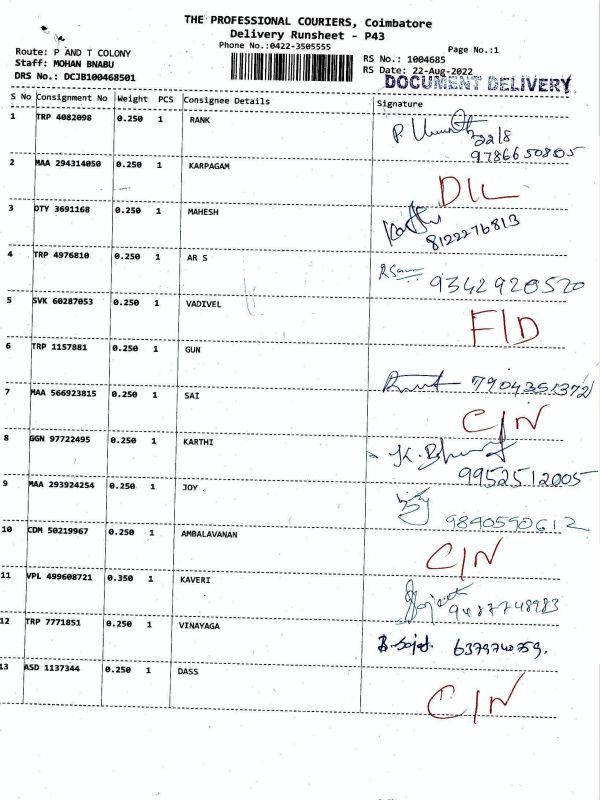 THE PROFESSIONAL COURIERS, Coimbatore
Delivery Runsheet - P43
Phone No.:0422-3505555
Page No.:1
Route: P AND T COLONY
Staff: MOHAN BNABU
DRS No.: DCJB100468501
RS No.: 1004685
RS Date: 22-Aug-2022
DOCUMENT DELIVERY
S No Consignment No Weight PCS Consignee Details Signature
1 TRP 4082098 0.250 1 RANK
22/8
9786650805
2 MAA 294314050 0.250 1 KARPAGAM D/L
3 DTY 3691168 0.250 1 MAHESH
8122276813
4 TRP 4976810 0.250 1 AR S 9342920520
5 SVK 60287053 0.250 1 VADIVEL F/D
6 TRP 1157881 0.250 1 GUN 7904351372
7 MAA 566923815 0.250 1 SAI C/N
8 GGN 97722495 0.250 1 KARTHI
9952512005
9 MAA 293924254 0.250 1 JOY 9840590612
10 CDM 50219967 0.250 1 AMBALAVANAN C/N
11 VPL 499608721 0.350 1 KAVERI 9487748983
12 TRP 7771851 0.250 1 VINAYAGA
13 ASD 1137344 0.250 1 DASS C/N